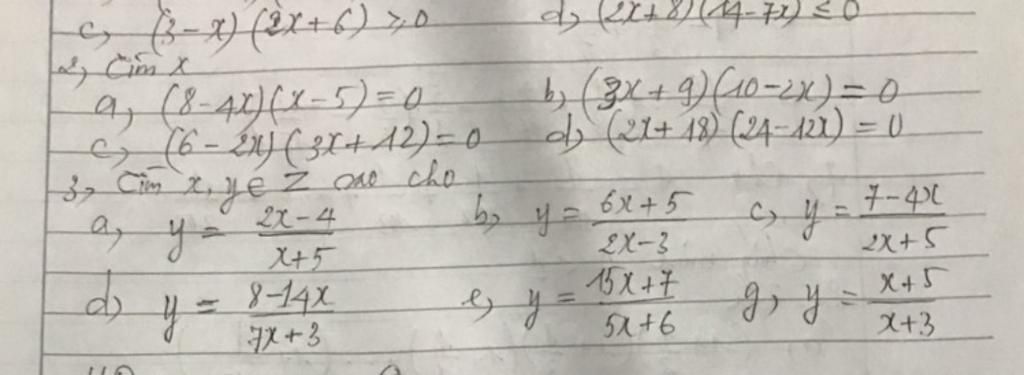 c, (3-x)(2x+6) ≥ 0 d, (2x+8)(14-7x) ≤ 0
2, Tìm x
a, (8-4x)(x-5)=0 b, (3x+9)(10-2x)=0
c, (6-2x)(3x+12)=0 d, (2x+18)(24-12x)=0
3, Tìm x, y ∈ Z sao cho
a, y = \frac{2x-4}{x+5} b, y = \frac{6x+5}{2x-3} c, y = \frac{7-4x}{2x+5}
d, y = \frac{8-14x}{7x+3} e, y = \frac{15x+7}{5x+6} g, y = \frac{x+5}{x+3}